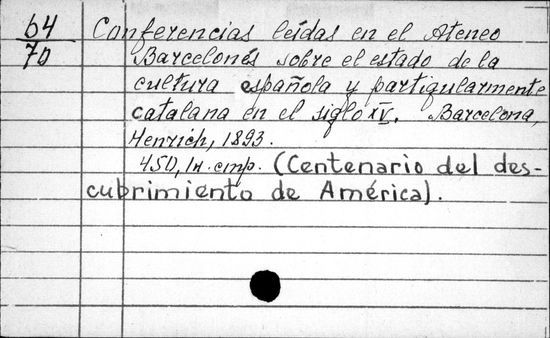 64
70
Conferencias leídas en el Ateneo
Barcelonés sobre el estado de la
cultura española y partigularmente
catalana en el siglo XV. Barcelona,
Henrich, 1893.
450, IH. стр. (Centenario del des-
cubrimiento de América).